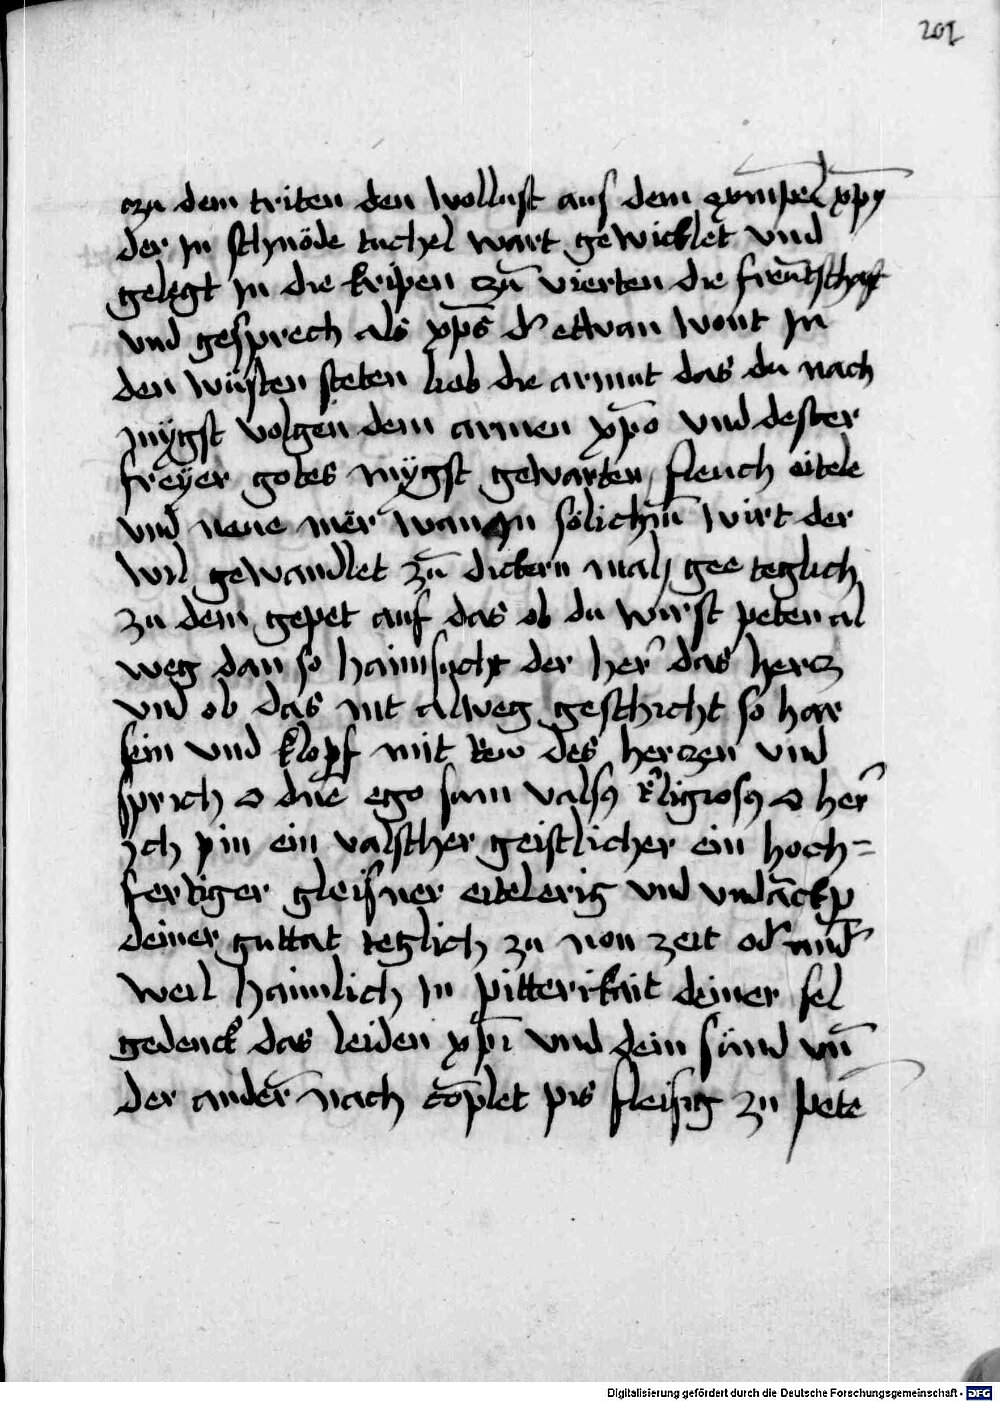 201
czu dem triten den wollust aus dem exempel xpy
der jn schnöde tuchel wart gewicklet vnd
gelegt jn die kripen zū vierten die freūtschaft
vnd gesprech als xp̄s d' etwan wont jn
den wüsten steten lieb die armut das du nach
mÿgst volgen dem armen xp̄o vnd dester
freÿer gotes mÿgst gewarten fleuch eitele
vnd neue mër wan jn sölichm̄ wirt der
wil gewandlet zū dickern mal gee teglich
zu dem gepet auf das ob du wirst peten al
weg dan so haimsucht der her' das hercz
vnd ob das nit alweg geschicht so har
sein vnd klopf mit rew des herczen vnd
sprich o dn̄e ego sum valsꝯ r'ligiosꝯ o her'
jch pin ein valscher geistlicher ein hoch=
fertiger gleisner eitelerig vnd vndāckp
deiner guttat teglich zu non zeit od' and'
weil haimlich jn pitterikait deiner sel
gedenck das leiden xp̄i vnd dein sünd vn̄
der ander nach cōplet pis fleisig zu petē
Digitalisierung gefördert durch die Deutsche Forschungsgemeinschaft - DFG